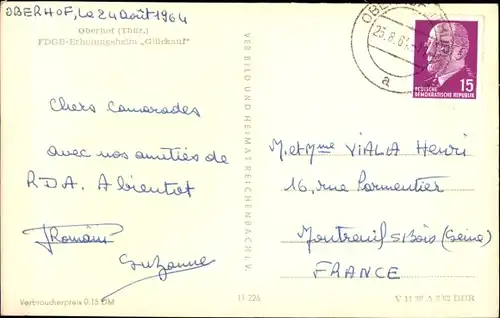 OBERHOF, Le 24 Août 1964
Oberhof (Thür.)
FDGB-Erholungsheim „Glückauf"
Chers Camarades
avec nos amitiés de
RDA. A bientot
Suzanne
Verbraucherpreis 0,15 DM
VEB BILD UND HEIMAT REICHENBACH I. V.
11 226
OBERHOF
25.8.64
a
DEUTSCHE
DEMOKRATISCHE REPUBLIK
15
M. et Mme VIALA Henri
16, rue Parmentier
Montreuil s/Bois (Seine)
FRANCE
DDR